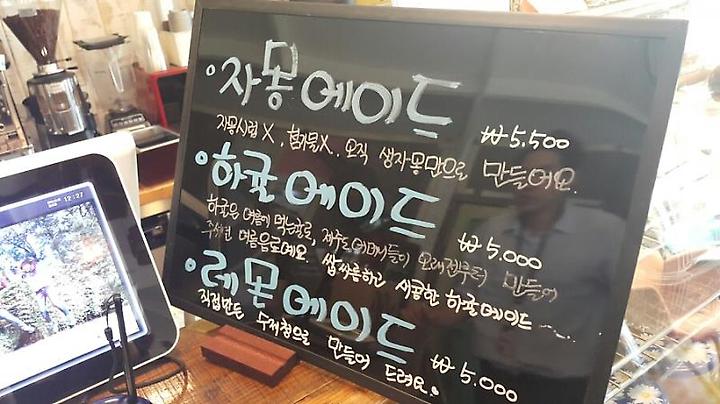 자몽에이드
₩5,500
자몽시럽X, 첨가물X. 오직 생자몽만으로 만들어요.
하귤에이드
₩5,000
하귤은 여름에 먹는귤로, 제주도 어머니들이 오래전부터 만들어
주셨던 여름음료예요. 쌉싸름하고 시큼한 하귤에이드
레몬에이드
₩5,000
직접만든 수제청으로 만들어 드려요.
12:27